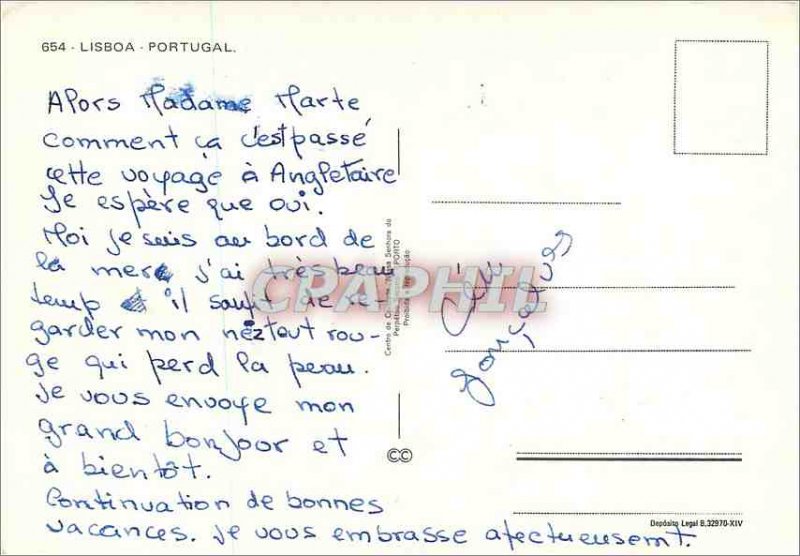 654 - LISBOA - PORTUGAL.
Alors Madame Marte
comment ça c'est passé
cette voyage à Angletaire
Je espère que oui.
Moi je suis au bord de
la mer j'ai très beau
temp il soufit de re-
garder mon nez tout rou-
ge qui perd la peau.
Je vous envoye mon
grand bonjoor et
à bientôt.
Continuation de bonnes
vacances. je vous embrasse afectueusemt.
CPAPHIL
Gonçalves
CC
Depósito Legal B,32970-XIV